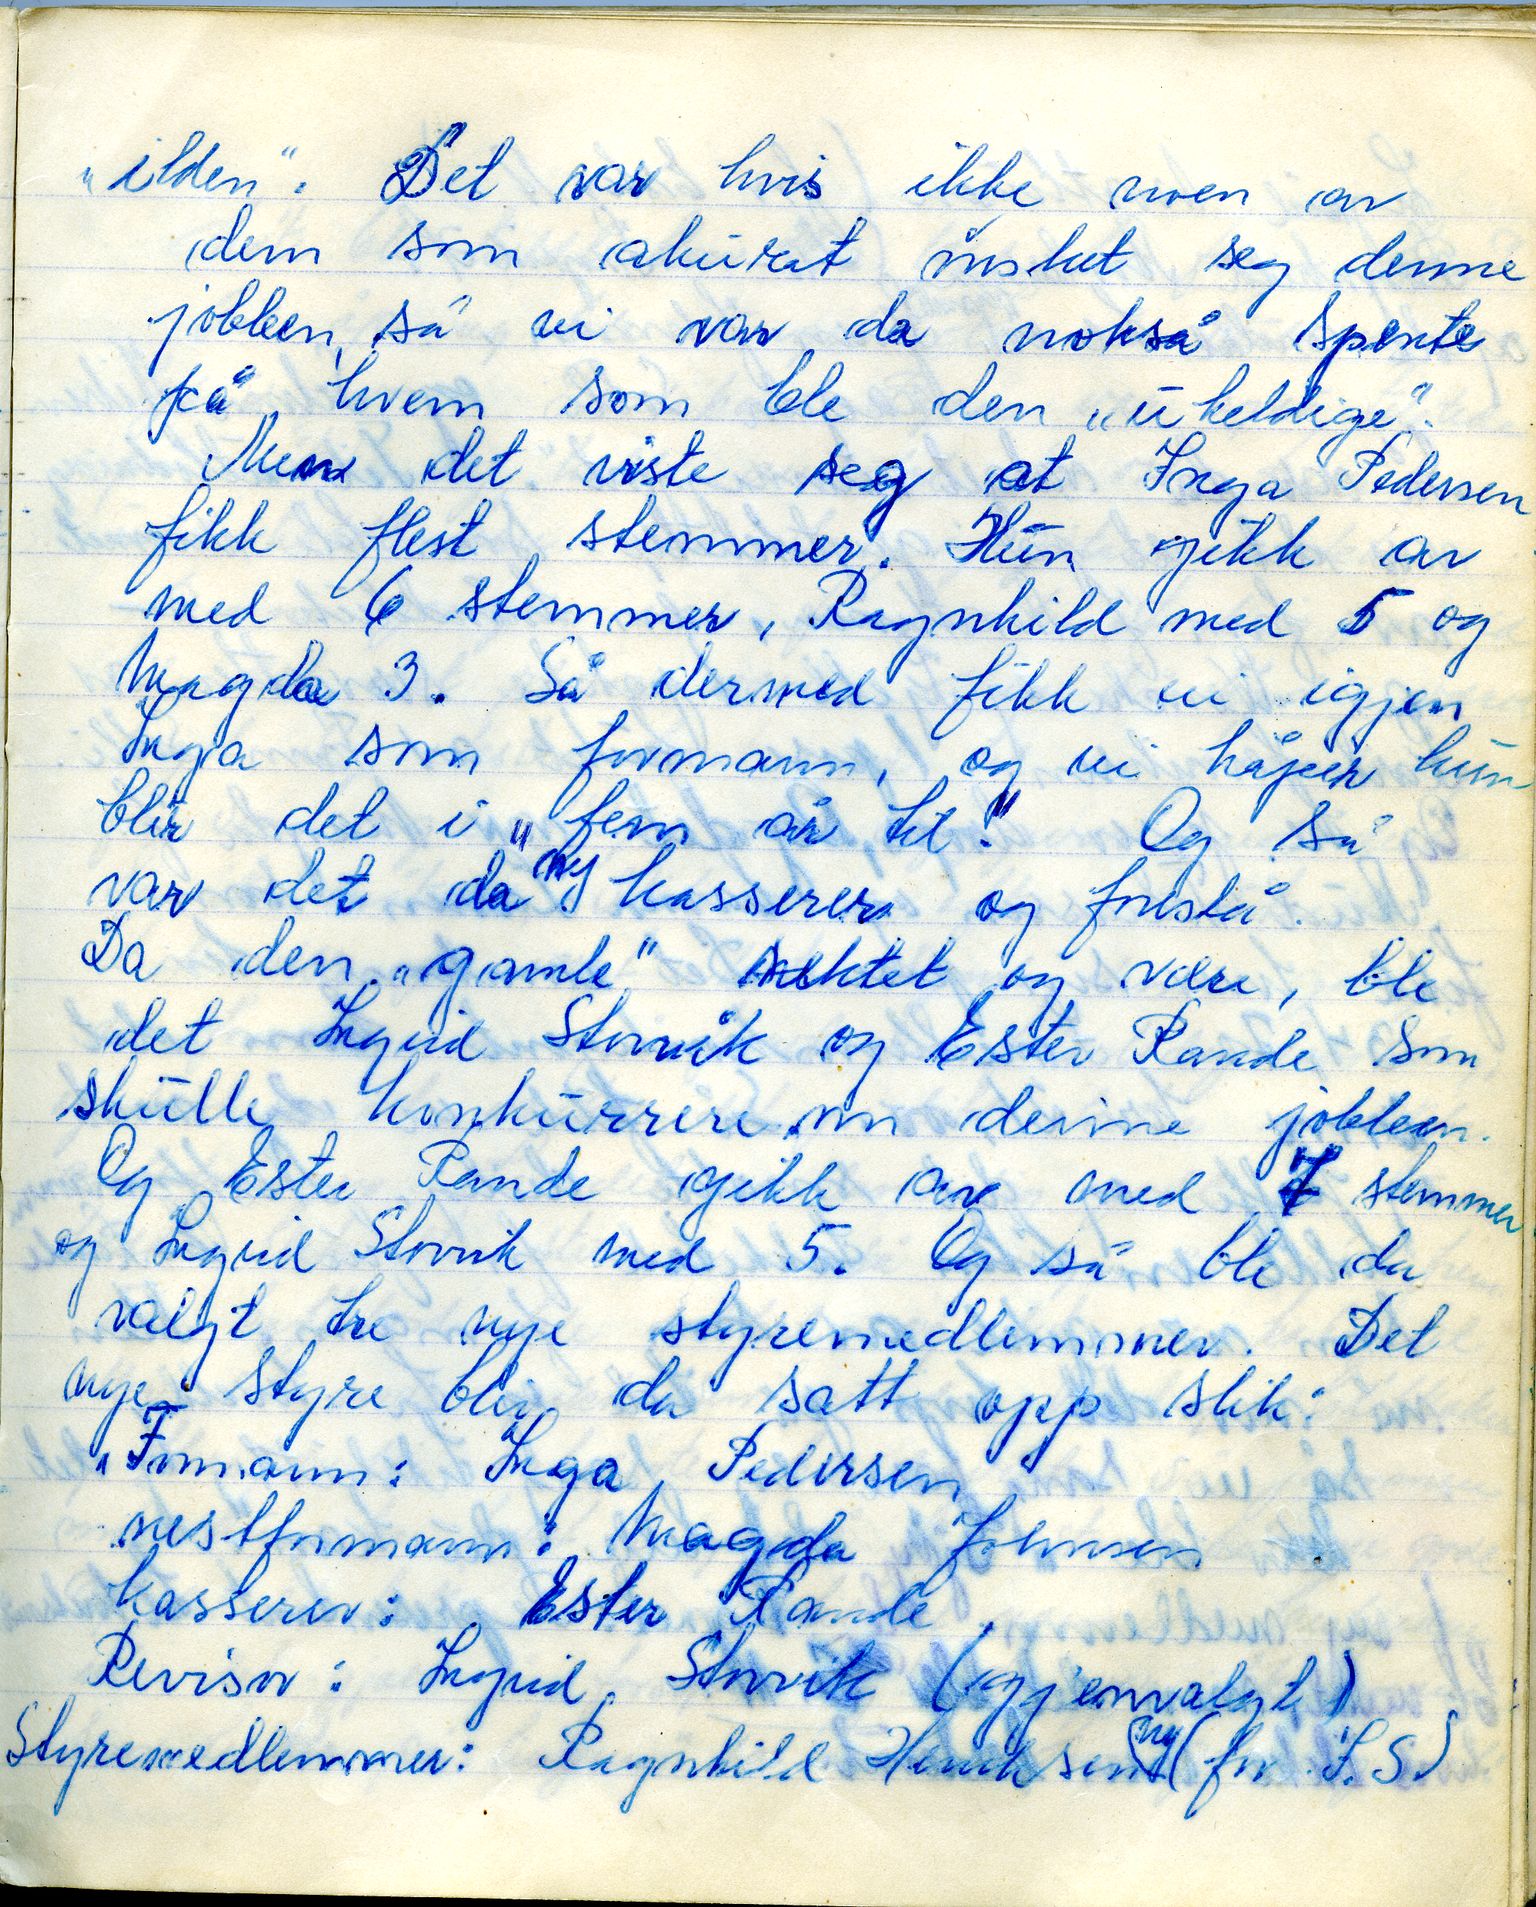 „ilden". Det var hvis ikke noen av
dem som akurat ønsket seg denne
jobben, så vi var da nokså spente
på hvem som ble den „uheldige".
Men det viste seg at Inga Pedersen
fikk flest stemmer. Hun gikk av
med 6 stemmer, Ragnhild med 5 og
Magda 3. Så dermed fikk vi igjen
Inga som formann, og vi håper hun
blir det i „fem år til." Og så
var det da ny kasserer og foreslå.
Da den „gamle" nektet og være, ble
det Ingrid Storvik og Ester Rande som
skulle konkurrere om denne jobben.
Og Ester Rande gikk av med 7 stemmer
og Ingrid Storvik med 5. Og så ble da
valgt tre nye styremedlemmer. Det
nye styre blir da satt opp slik:
„Formann: Inga Pedersen
nestformann: Magda Johnsen
kasserer: Ester Rande
Revisor: Ingrid Storvik (igjenvalgt)
Styremedlemmer: Ragnhild Henriksen (ny) (for I.S.)